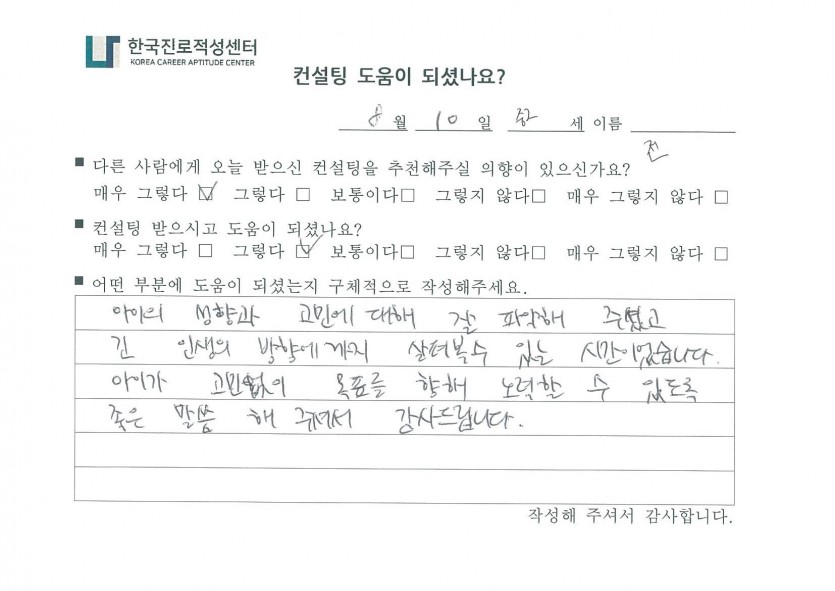 한국진로적성센터
KOREA CAREER APTITUDE CENTER
컨설팅 도움이 되셨나요?
8 월 10 일 중2 세 이름
전
■ 다른 사람에게 오늘 받으신 컨설팅을 추천해주실 의향이 있으신가요?
매우 그렇다 ☑ 그렇다 □ 보통이다□ 그렇지 않다□ 매우 그렇지 않다 □
■ 컨설팅 받으시고 도움이 되셨나요?
매우 그렇다 □ 그렇다 ☑ 보통이다□ 그렇지 않다□ 매우 그렇지 않다 □
■ 어떤 부분에 도움이 되셨는지 구체적으로 작성해주세요.
아이의 성향과 고민에 대해 잘 파악해 주셨고
긴 인생의 방향에까지 살펴볼수 있는 시간이었습니다.
아이가 고민없이 목표를 향해 노력할 수 있도록
좋은 말씀 해 주셔서 감사드립니다.
작성해 주셔서 감사합니다.